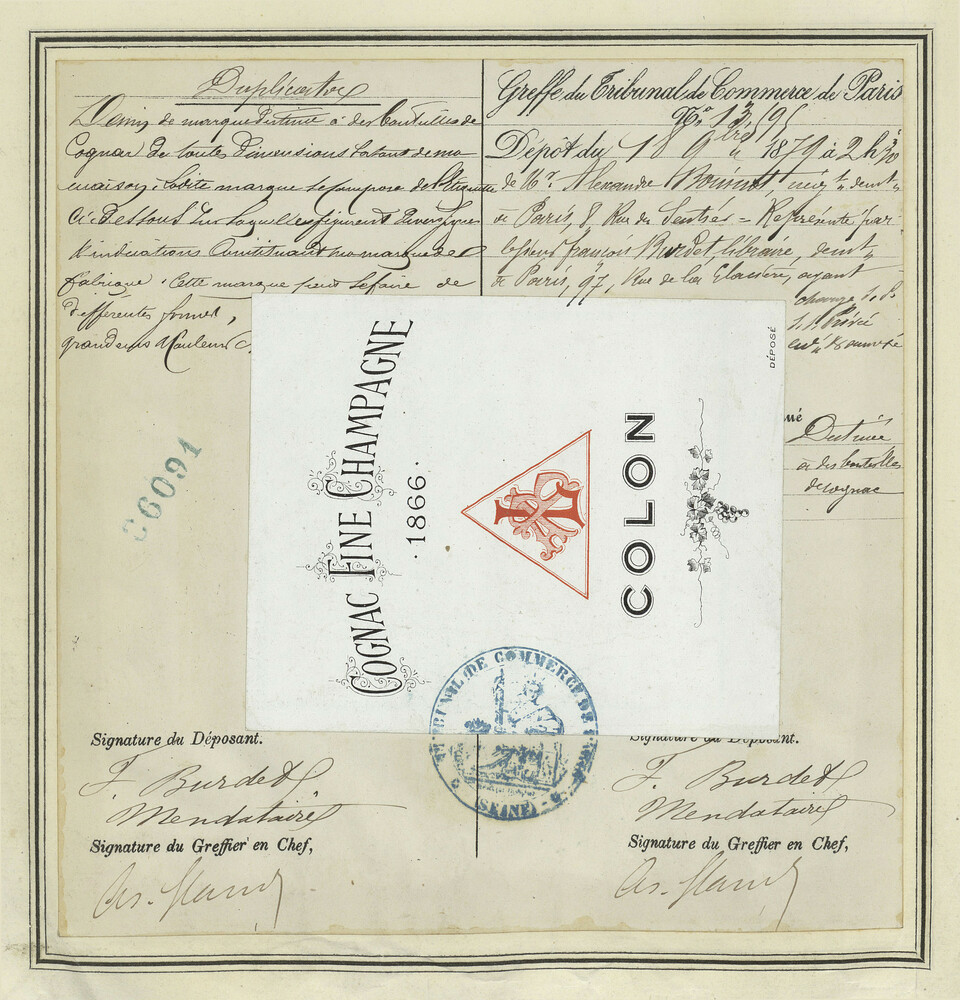 Duplicata
de marque destinée à des bouteilles de
Cognac de toutes dimensions sortant de ma
maison, ladite marque se compose de l'étiquette
ci-dessous sur laquelle figurent divers signes
& indications constituant ma marque de
fabrique. Cette marque peut se faire de
différentes formes,
grandeurs & couleurs
C6091
Greffe du Tribunal de Commerce de Paris
Dépôt du 18 9bre 1879 à 2h
de Mr. Alexandre négt. demt.
à Paris, 8, Rue du Sentier = Représenté par
le sieur françois Burdet, libraire, demt.
à Paris, 97, Rue de la Glacière, ayant
charge s. s.
s. Privé
enr.
Destinée
à des bouteilles
de cognac
COGNAC FINE CHAMPAGNE
·1866·
COLON
DÉPOSÉ
TRIBUNAL DE COMMERCE DE
(SEINE)
Signature du Déposant.
F. Burdet
Mendataire
Signature du Greffier en Chef,
Signature du Déposant.
F. Burdet
Mendataire
Signature du Greffier en Chef,